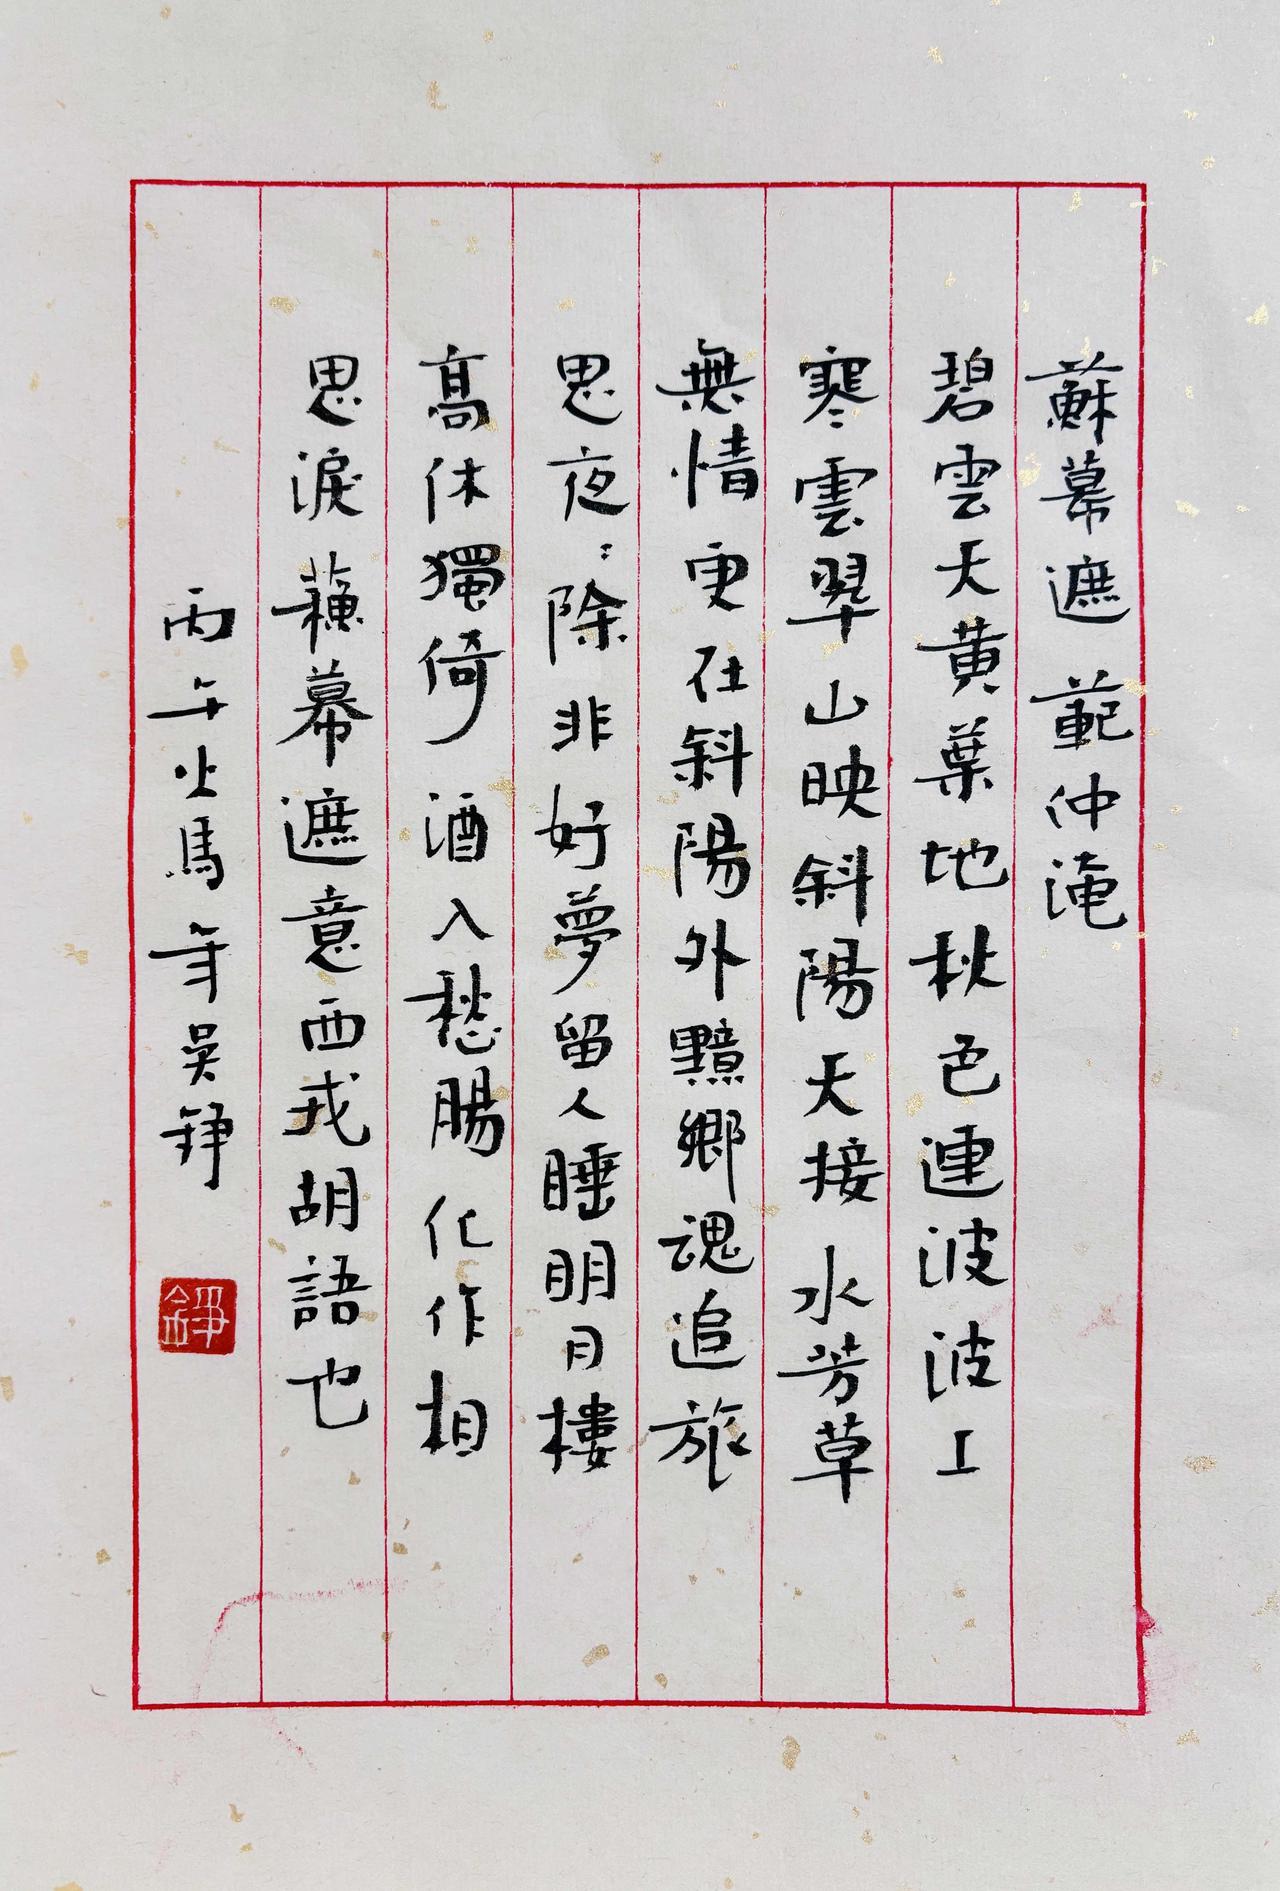 蘇幕遮 範仲淹
碧雲天黄葉地秋色連波波工
寒雲翠山映斜陽天接水芳草
無情更在斜陽外黯鄉魂追旅
思夜〻除非好夢留人睡明月樓
高休獨倚酒入愁腸化作相
思淚 蘇幕遮意西戎胡語也
丙午火馬年吳錚
錚